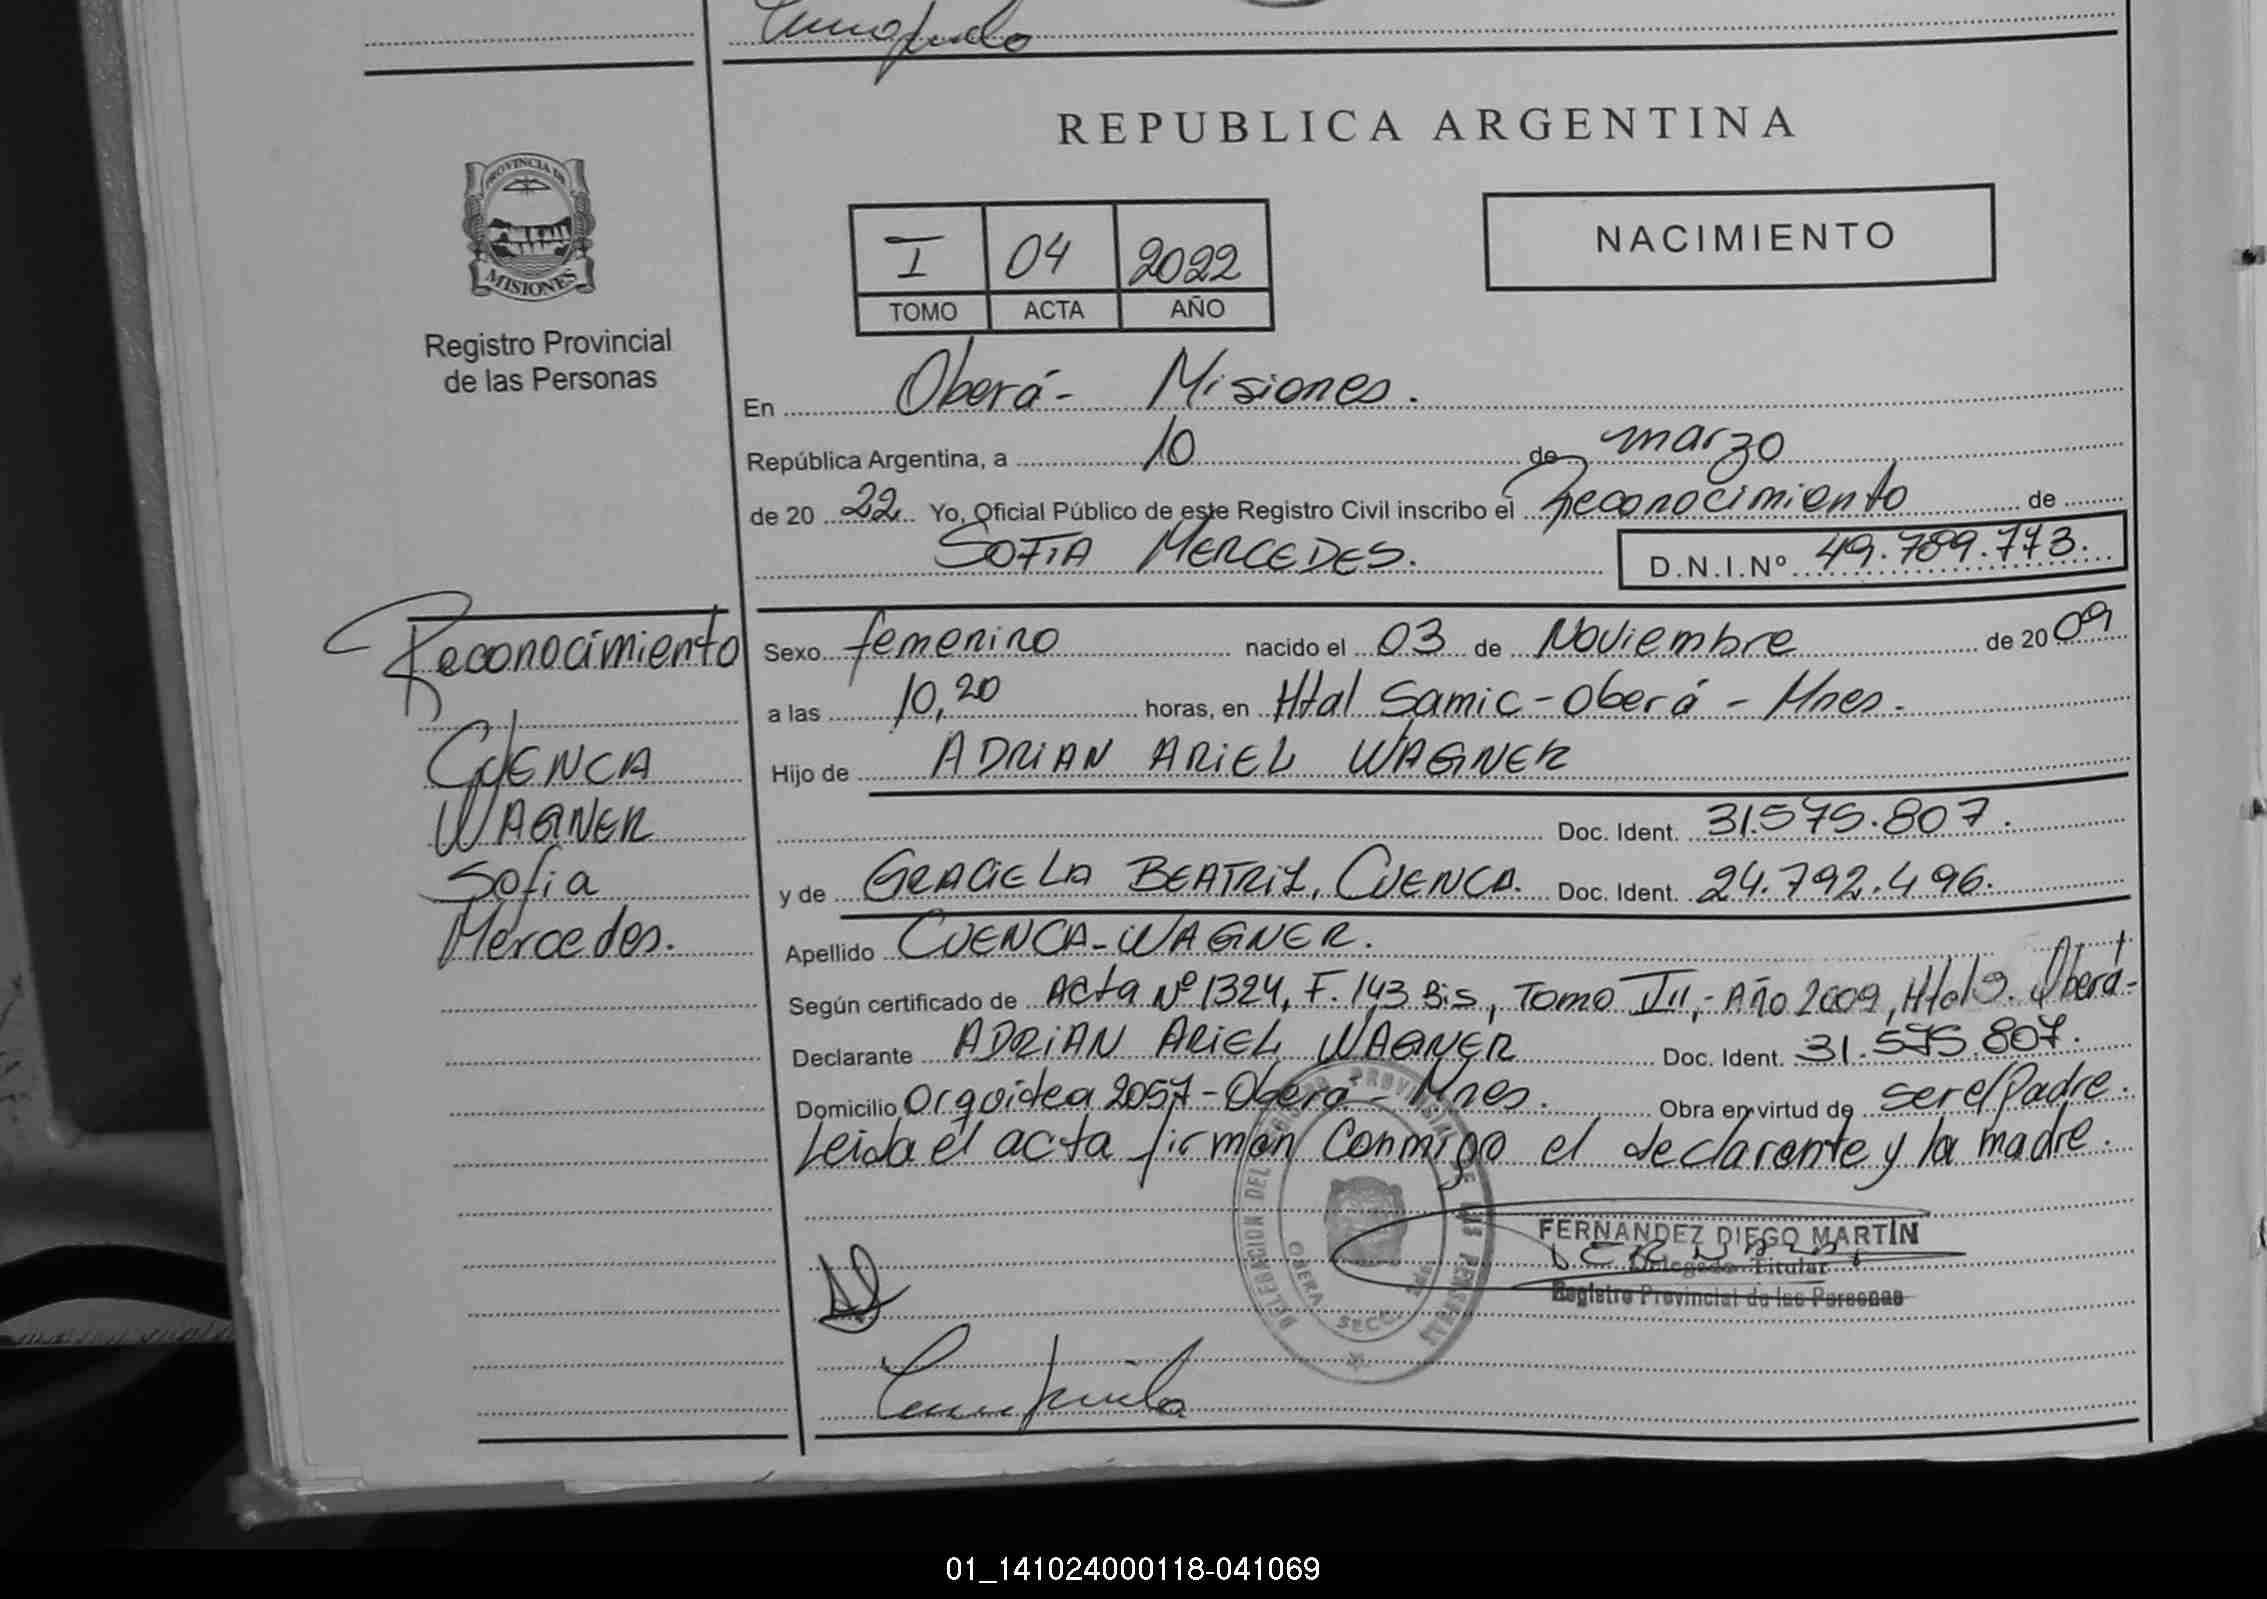 REPUBLICA ARGENTINA
PROVINCIA DE
MISIONES
Registro Provincial
de las Personas
I 04 2022
TOMO ACTA AÑO
NACIMIENTO
En Oberá - Misiones.
República Argentina, a 10 de marzo
de 20 22 Yo, Oficial Público de este Registro Civil inscribo el Reconocimiento de
SOFIA MERCEDES. D.N.I.Nº 49.789.773.
Reconocimiento
CUENCA
WAGNER
Sofia
Mercedes.
Sexo femenino nacido el 03 de Noviembre de 20 09
a las 10,20 horas, en Htal Samic - Oberá - Mnes.
Hijo de ADRIAN ARIEL WAGNER
Doc. Ident. 31.575.807.
y de GRACIELA BEATRIZ, CUENCA. Doc. Ident. 24.792.496.
Apellido CUENCA-WAGNER.
Según certificado de Acta Nº 1324, F. 143 Bis, Tomo III, - Año 2009, Htal S. Oberá-
Declarante ADRIAN ARIEL WAGNER Doc. Ident. 31.575.807.
Domicilio Orquidea 2057 - Oberá - Mnes. Obra en virtud de ser el Padre.
Leida el acta firman conmigo el declarante y la madre.
DELEGACION DEL REGISTRO PROVINCIAL DE LAS PERSONAS
OBERA SECC. 2da
FERNANDEZ DIEGO MARTIN
Delegado Titular
Registro Provincial de las Personas
01_141024000118-041069